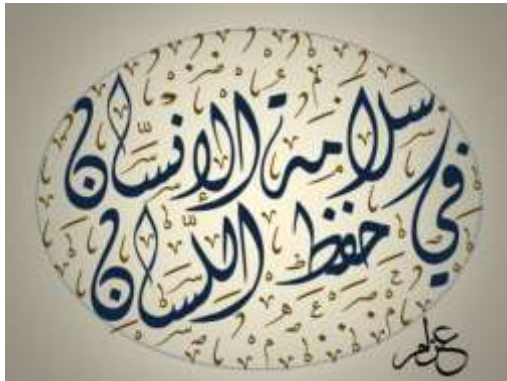 سلامة الإنسان
في حفظ اللسان
عزام